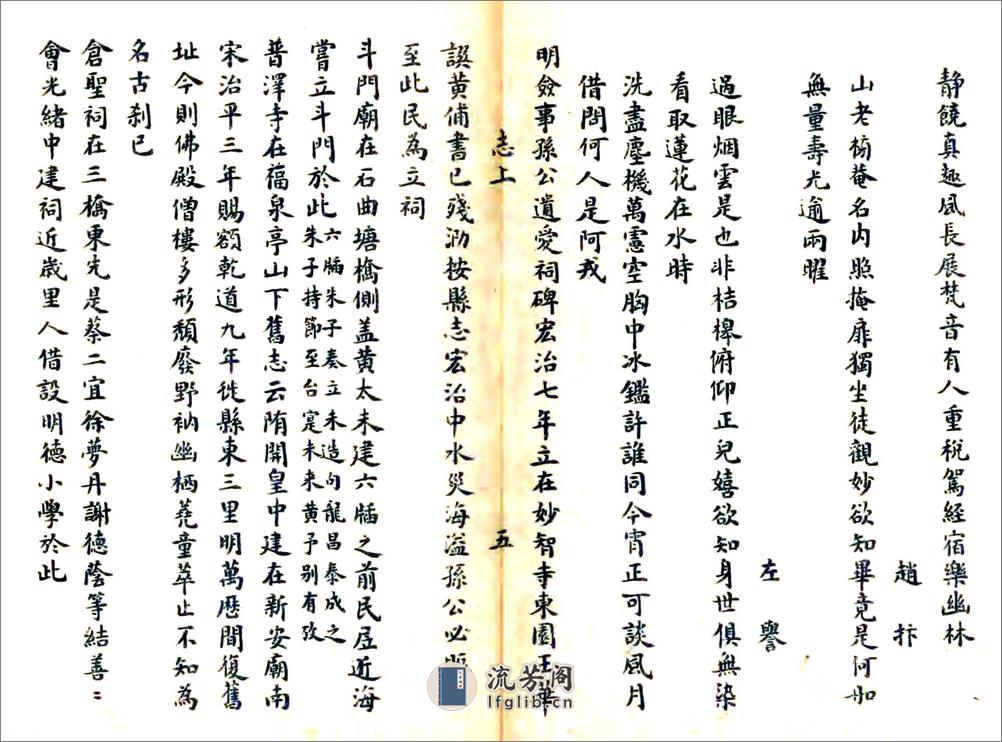 静饒真趣風長展梵音有人重稅駕經宿樂幽林
趙抃
山老榜菴名内照掩扉獨坐徒觀妙欲知畢竟是何如
無量壽光逾兩曜
左譽
過眼烟雲是也非桔橰俯仰正兒嬉欲知身世俱無染
看取蓮花在水時
洗盡塵機萬慮空胸中冰鑑許誰同今宵正可談風月
借問何人是阿戎
明僉事孫公遺愛祠碑宏治七年立在妙智寺東園王華
志上 五
譔黄俌書已殘泐按縣志宏治中水災海溢孫公必
至此民為立祠
斗門廟在石曲塘橋側盖黄太未建六牐之前民居近海
嘗立斗門於此六牐朱子奏立未造句龍昌泰成之朱子持節至台寔未来黄予别有攷
普澤寺在福泉亭山下舊志云隋開皇中建在新安廟南
宋治平三年賜額乾道九年徙縣東三里明萬歷間復舊
址今則佛殿僧樓多形頽廢野衲幽栖蕘童萃止不知為
名古刹已
倉聖祠在三橋東先是蔡二宜徐夢丹謝德蔭等結善〻
會光緒中建祠近歲里人借設明德小學於此
流芳阁
lfglib.cn